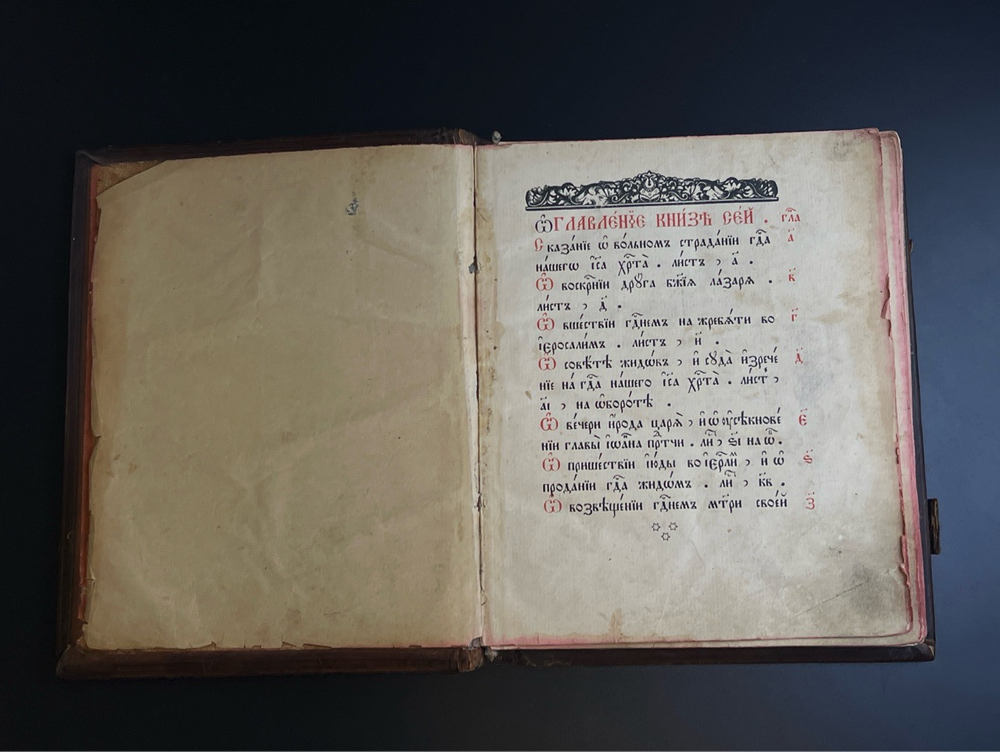 Ѡ҆ГЛАВЛЕ́НЇЕ КНИ́ЗѢ СЕ́Й . гла҃
Сказа́нїе ѡ҆ во́льномъ страда́нїи гд҇а а҃
на́шегѡ і҆с҃а хр҇та̀ . ли́стъ , а҃ .
Ѽ воскр҇нїи дрꙋ́га бж҃їѧ ла́зарѧ . в҃
ли́стъ , д҃ .
Ѽ вше́ствїи гд҇немъ на жребѧ́ти во г҃
і҆ерⷭ҇осали́мъ . ли́стъ , и҃ .
Ѽ совѣ́тѣ жидѡ́въ , и҆ сꙋда̀ и҆зрече́ д҃
нїе на́ гд҇а на́шего і҆с҃а хр҇та̀ . ли́ст̾ ,
а҃і , на ѡ҆боро́тѣ .
Ѽ ве́чери и҆́рода царѧ̀ , и҆ ѡ҆ ᲂу҆сѣкнове́ е҃
нїи главы̀ і҆ѡа́на пр҇тчи . ли҇ , ѕ҃і на ѡ҆б .
Ѽ прише́ствїи і҆ю́ды во і҆ерⷭ҇ли́м , и҆ ѡ҆ ѕ҃
прода́нїи гд҇а жидѡ́мъ . ли҇ , к҃в .
Ѽ возвѣще́нїи гд҇немъ мт҃ри свое́й з҃